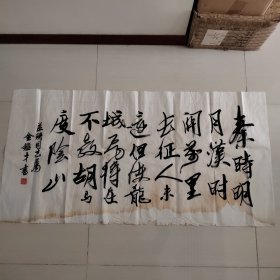 秦時明
月漢时
関萬里
长征人未
還但使龍
城飛將在
不教胡馬
度陰山
同志属